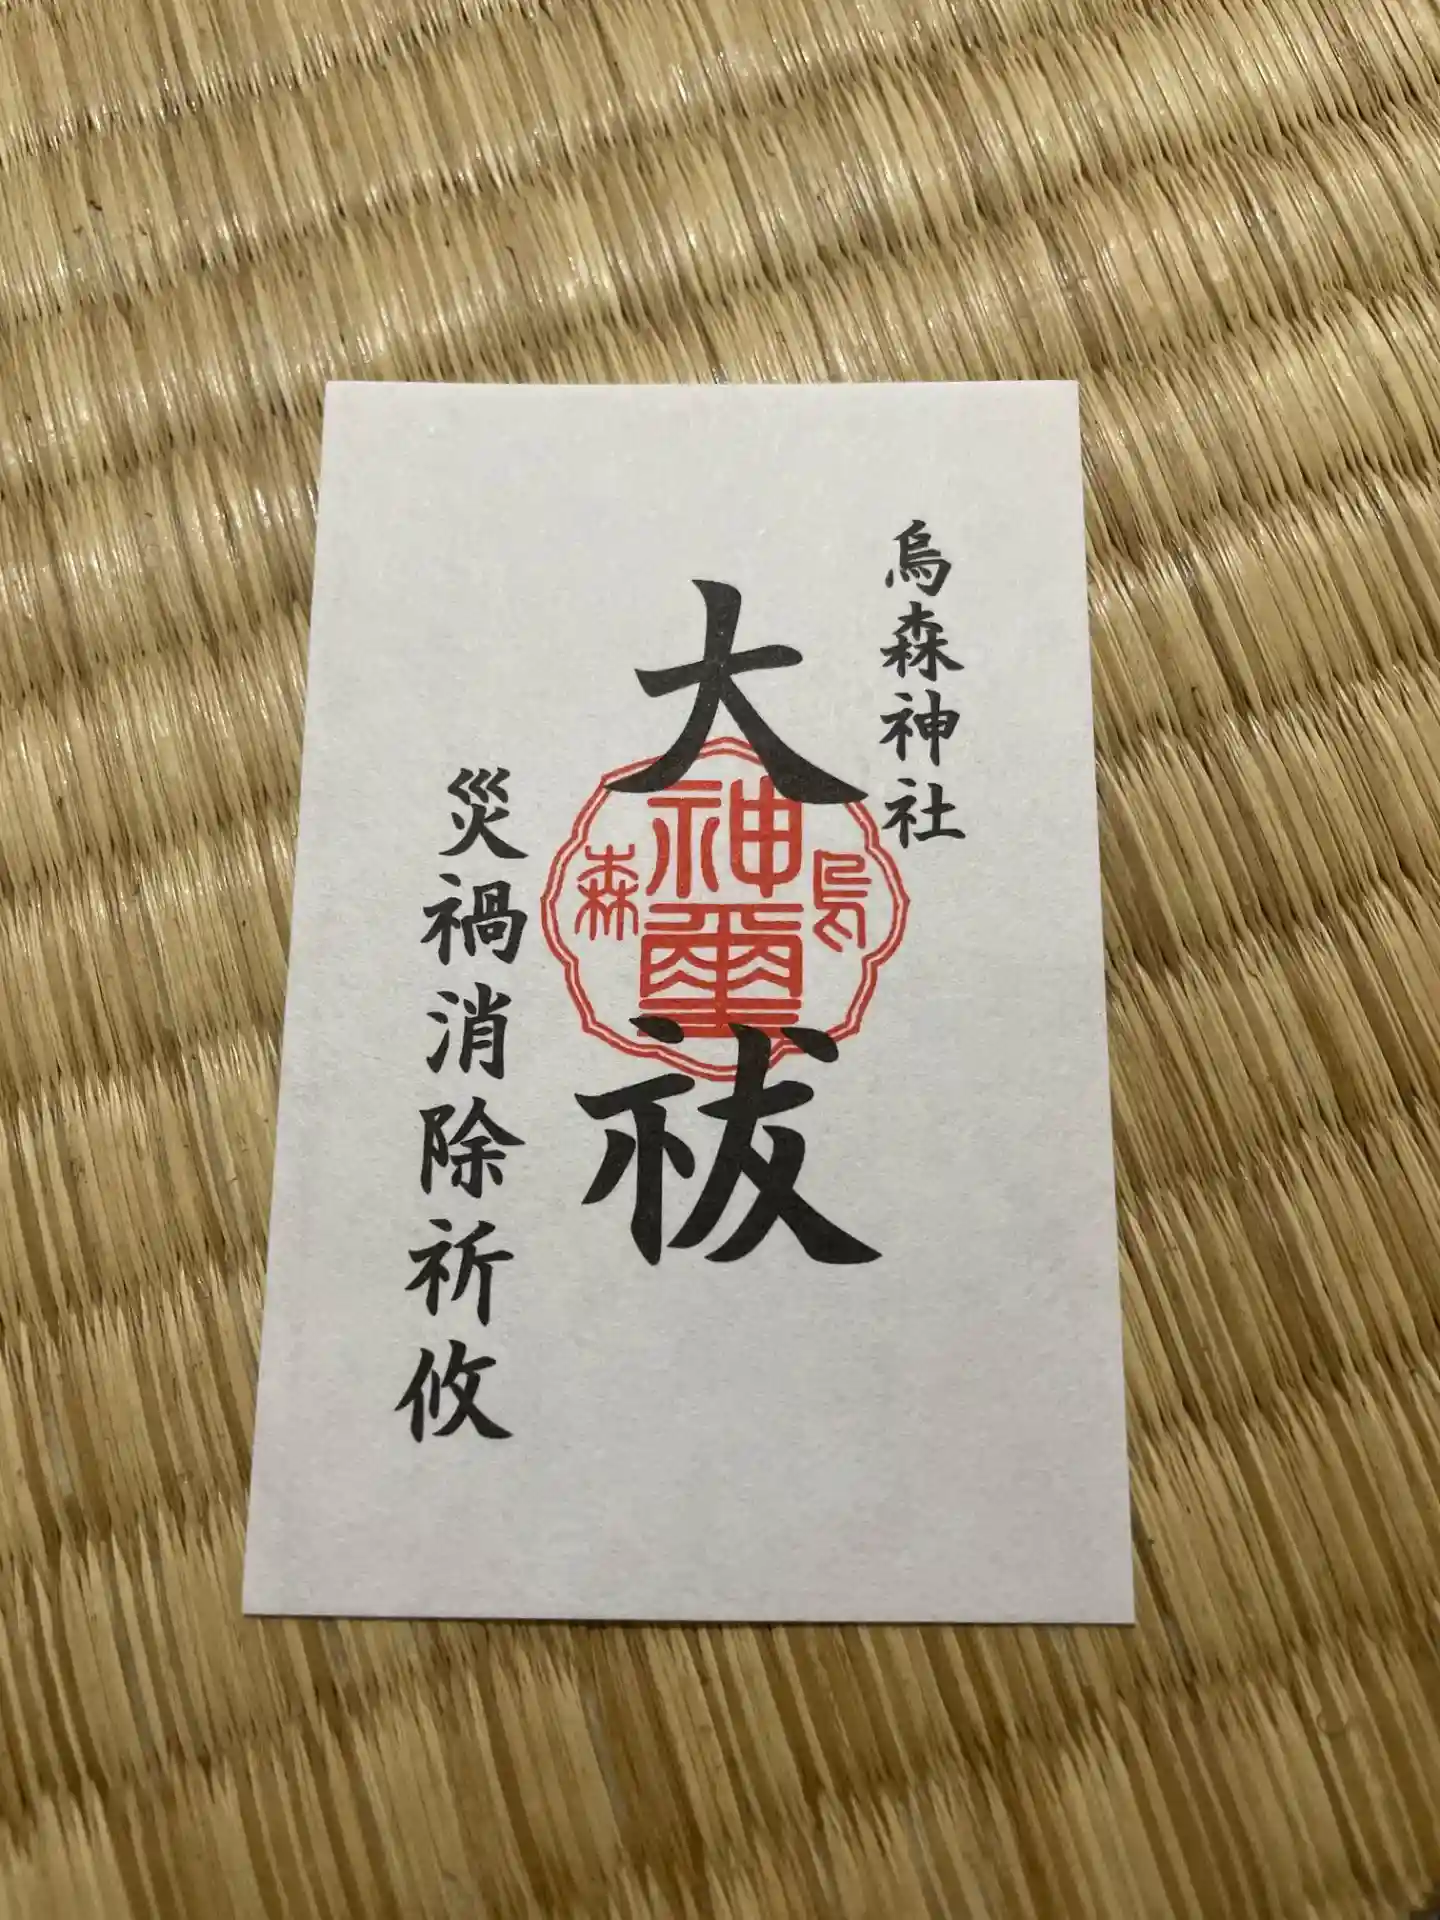 烏森神社
大祓
烏
神璽
森
災禍消除祈攸